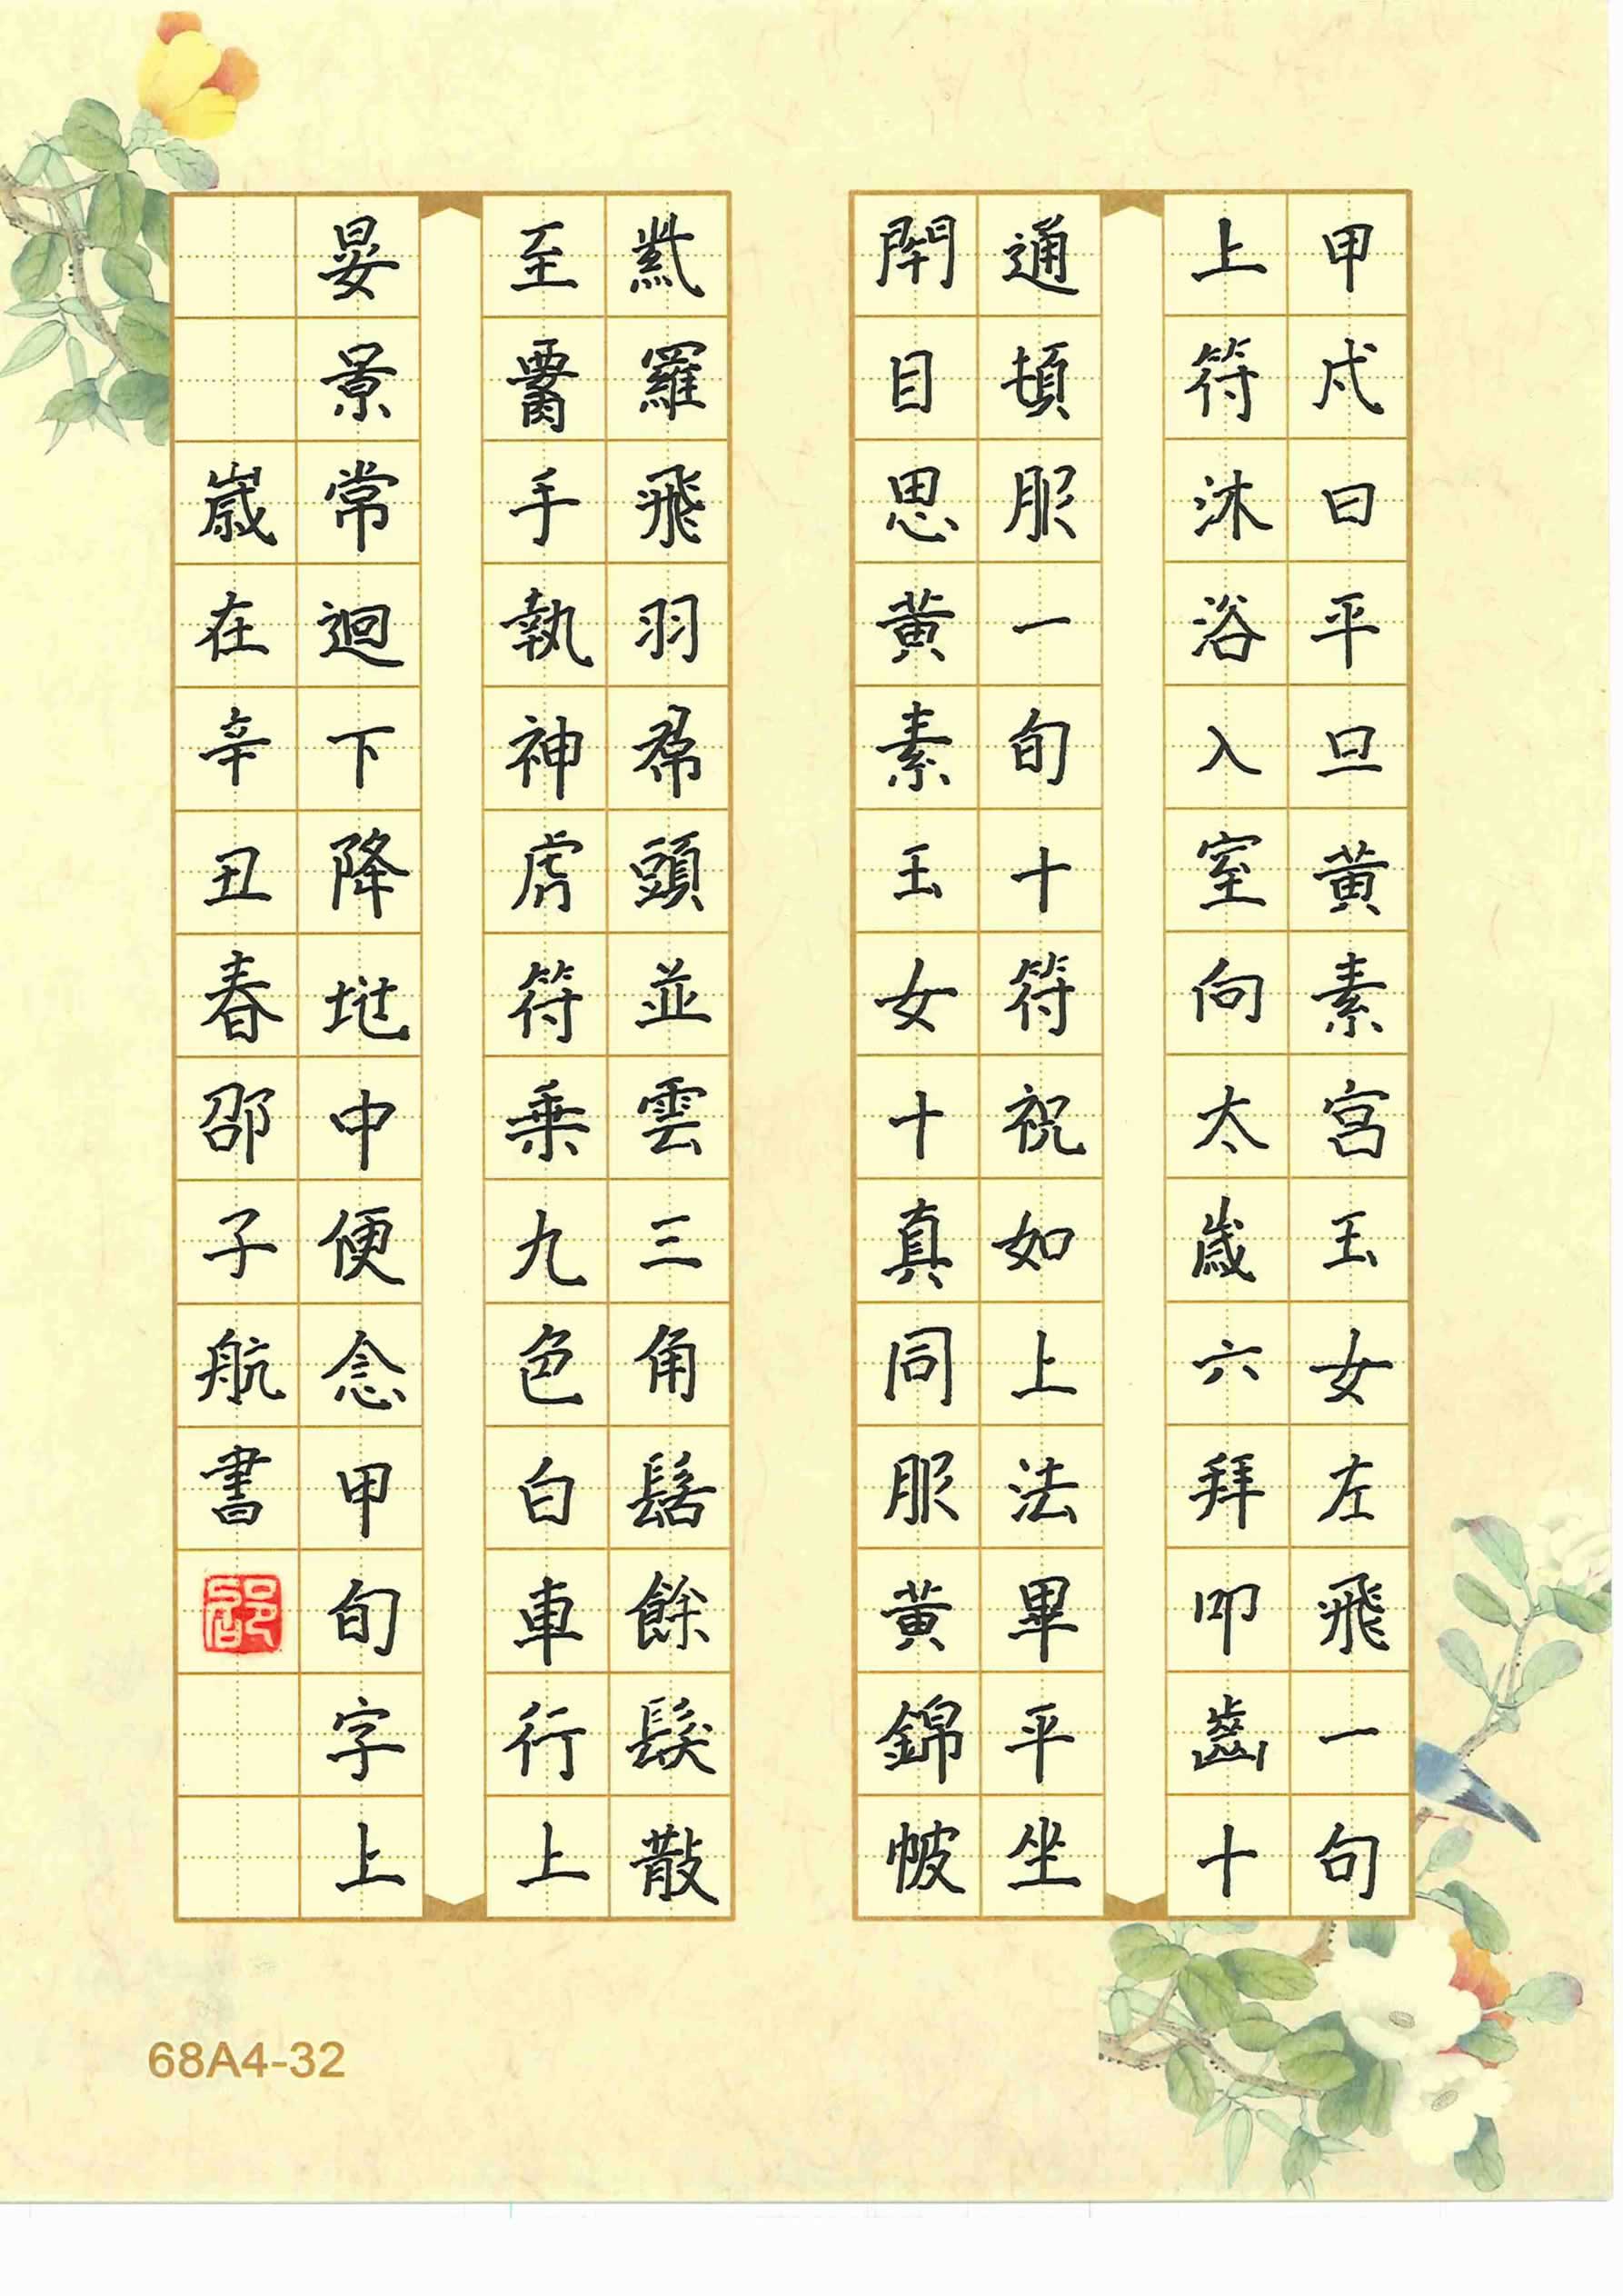 甲戌日平旦黃素宮玉女左飛一句
上符沐浴入室向太歲六拜叩齒十
通頓服一旬十符祝如上法畢平坐
開目思黃素玉女十真同服黃錦帔
紫羅飛羽帬頭並雲三角髻餘髮散
至手執神虎符乘九色白車行上
晏景常迴下降地中便念甲旬字上
歲在辛丑春邵子航書
68A4-32